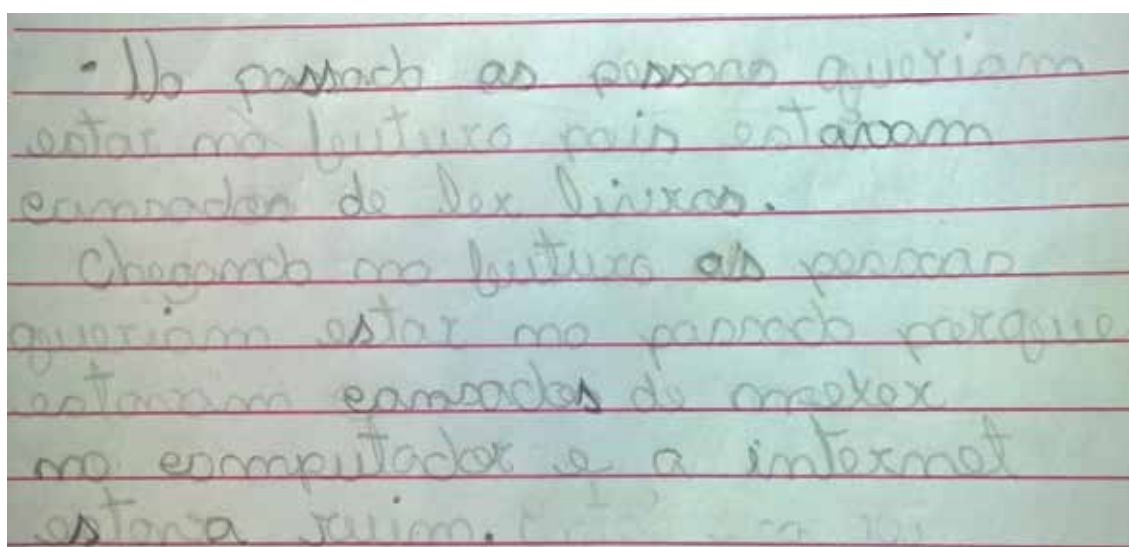 - No passado as pessoas queriam
estar no futuro pois estavam
cansadas de ler livros.
Chegando no futuro as pessoas
queriam estar no passado porque
estavam cansadas de mexer
no computador e a internet
estava ruim.